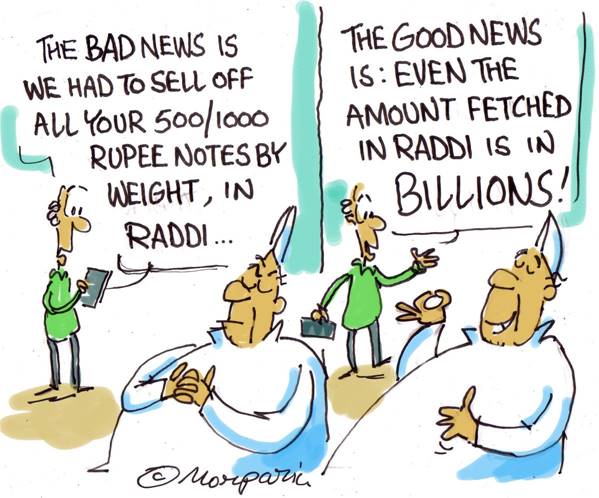 THE BAD NEWS IS
WE HAD TO SELL OFF
ALL YOUR 500/1000
RUPEE NOTES BY
WEIGHT, IN
RADDI...
THE GOOD NEWS
IS: EVEN THE
AMOUNT FETCHED
IN RADDI IS IN
BILLIONS!
© Morparia